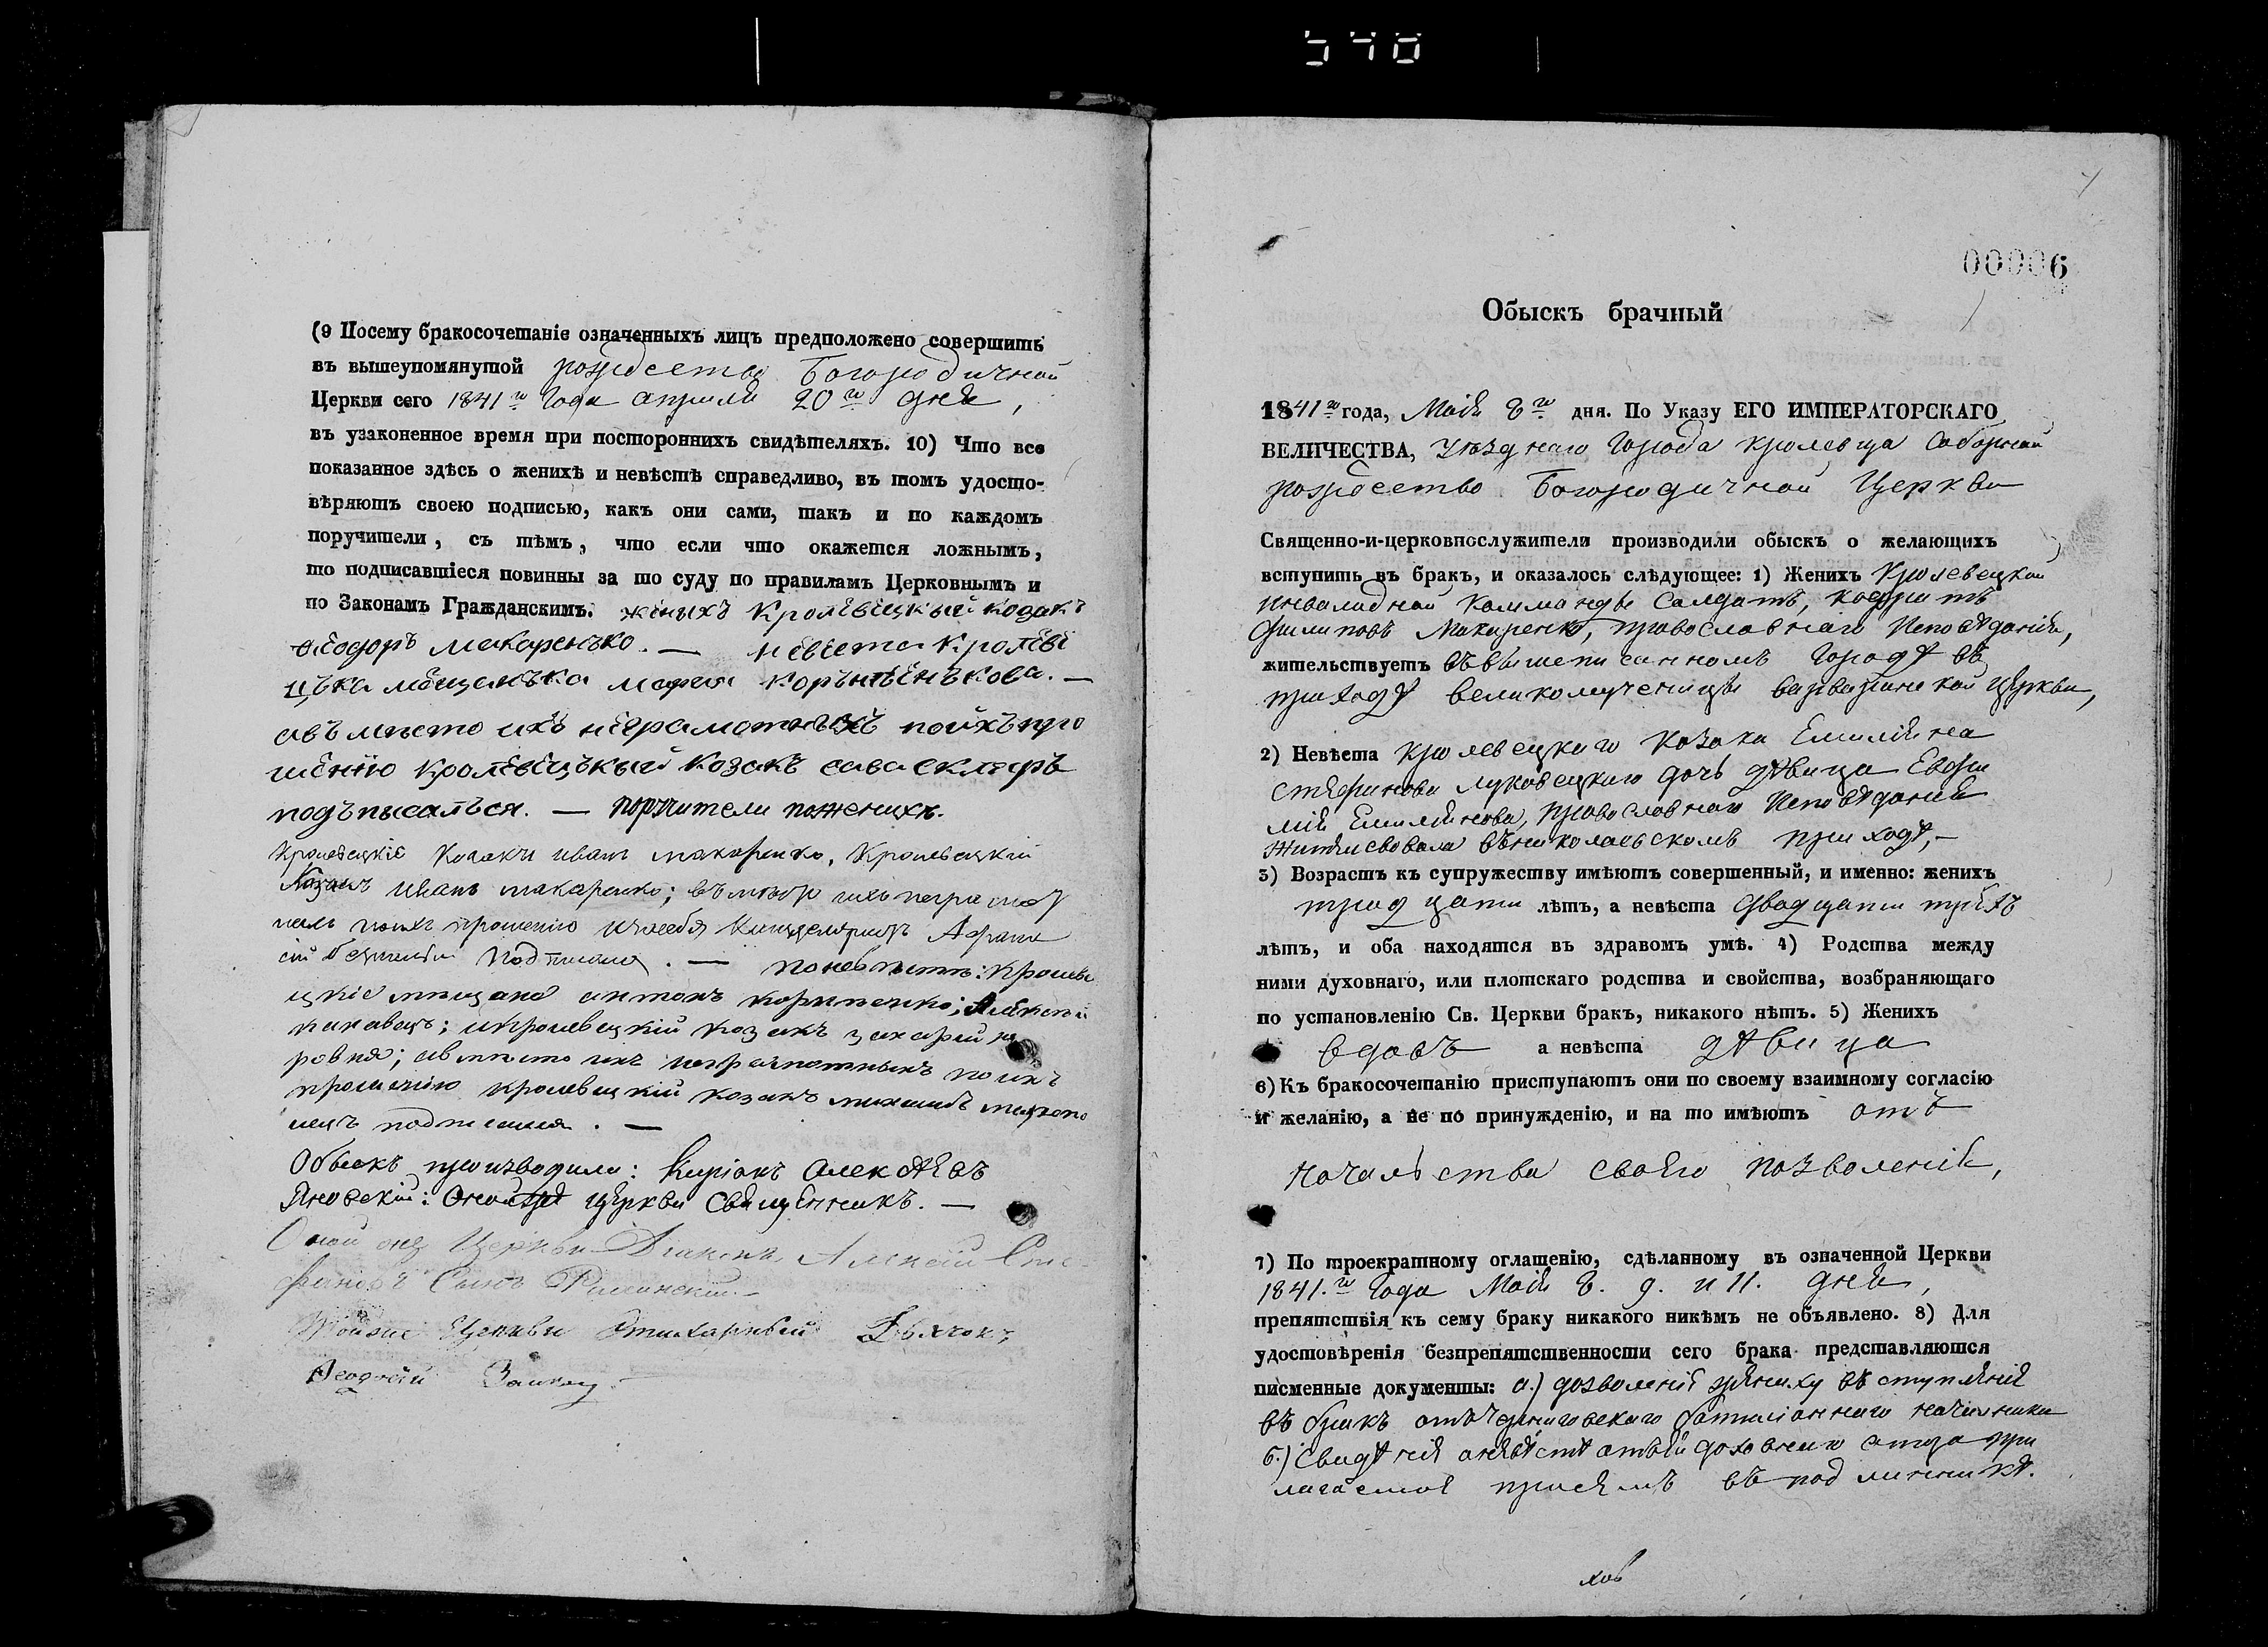 540
(9 Посему бракосочетаніе означенныхъ лицъ предположено совершить
въ вышеупомянутой рождество Богородичной
Церкви сего 1841го года апреля 20го дня,
въ узаконенное время при постороннихъ свидѣтеляхъ. 10) Что все
показанное здѣсь о женихѣ и невѣстѣ справедливо, въ томъ удосто-
вѣряютъ своею подписью, какъ они сами, такъ и по каждомъ
поручители, съ тѣмъ, что если что окажется ложнымъ,
то подписавшіеся повинны за то суду по правиламъ Церковнымъ и
по Законамъ Гражданскимъ. женыхъ Кролевецкый козакъ
Ѳеодоръ макаренъко. — невѣста Кролеве
цъка мещанъка марѳа Корънѣенъкова. —
авъместо ихъ неграмотныхъ поихъ про
шению кролевецъкый козакъ сава скляръ
подъписалъся. — поручители поженихѣ.
Кролевецкіе козаки иванъ макаренко, Кролевецкій
Козакъ иванъ макаренко; въместо ихъ неграмот
прошению Канцеляристъ Афана
сій подписалъ. — поневѣсте: кролеве
цкіе мещане антонъ корниенко; Алексѣй
икролевецкій козакъ захарій
ровня; авместо ихъ неграмотныхъ по ихъ
прошению кролевецкій козакъ михаилъ
подписался. —
Обыскъ производили: Киріакъ Алексѣевъ
Яновскій: Оной церкви Священникъ. —
Оной же Церкви Діаконъ Алексій Сте
фановъ Сынъ
Тойже Церкви Стихарный Дьячокъ
00006
Обыскъ брачный
1841го года, Маія 8го дня. По Указу ЕГО ИМПЕРАТОРСКАГО
ВЕЛИЧЕСТВА, уѣзднаго Города Кролевца Соборной
рождество Богородичной Церкви
Священно-и-церковнослужители производили обыскъ о желающихъ
вступить въ бракъ, и оказалось слѣдующее: 1) Женихъ Кролевецкой
инвалидной комманды Салдатъ, кодратъ
Филиповъ Макаренко, православнаго исповѣданія,
жительствуетъ въвышеписанномъ Городѣ въ
приходѣ великомученицы варваринской Церкви,
2) Невѣста кролевецкого козака Емиліяна
Стефанова Луковецкого дочь дѣвица Евфи
мія Емиліянова, православнаго исповѣданія
жителсвовала въниколаевскомъ приходѣ, —
3) Возрастъ къ супружеству имѣютъ совершенный, и именно: женихъ
тридцати лѣтъ, а невѣста двадцати трёхъ
лѣтъ, и оба находятся въ здравомъ умѣ. 4) Родства между
ними духовнаго, или плотскаго родства и свойства, возбраняющаго
по установленію Св. Церкви бракъ, никакого нѣтъ. 5) Женихъ
вдовъ а невѣста дѣвица
6) Къ бракосочетанію приступаютъ они по своему взаимному согласію
и желанію, а не по принужденію, и на то имѣютъ отъ
началства своего позволенія,
7) По троекратному оглашенію, сдѣланному въ означенной Церкви
1841.го года Маія 8. 9. и 11. дня,
препятствія къ сему браку никакого никѣмъ не объявлено. 8) Для
удостовѣренія безпрепятственности сего брака представляются
писменные документы: а.) дозволеніе жениху въступленія
въ бракъ отъчерниговского баталіонного началника
б.) Свидѣния оневѣстѣ отъея духовного отца при
лагаемоя присемъ въ подлинникѣ.